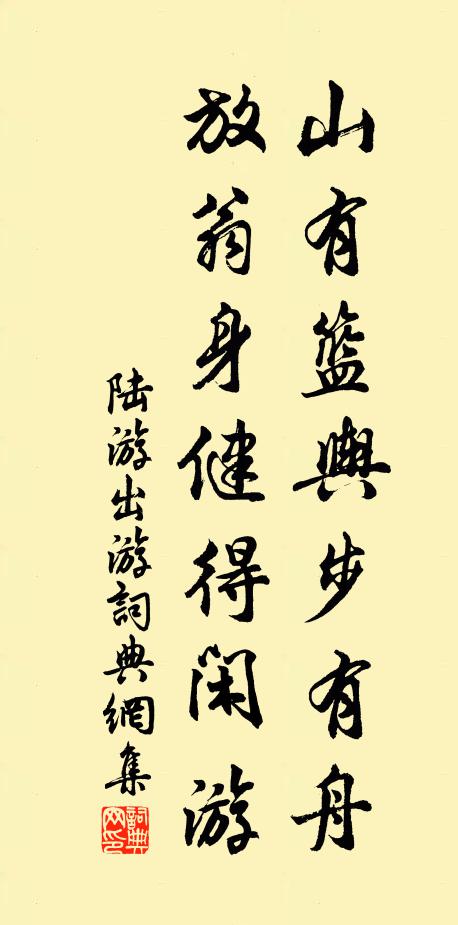 山有籃輿步有舟
放翁身健得閑游
陆游出游詞典網集
詞典網印